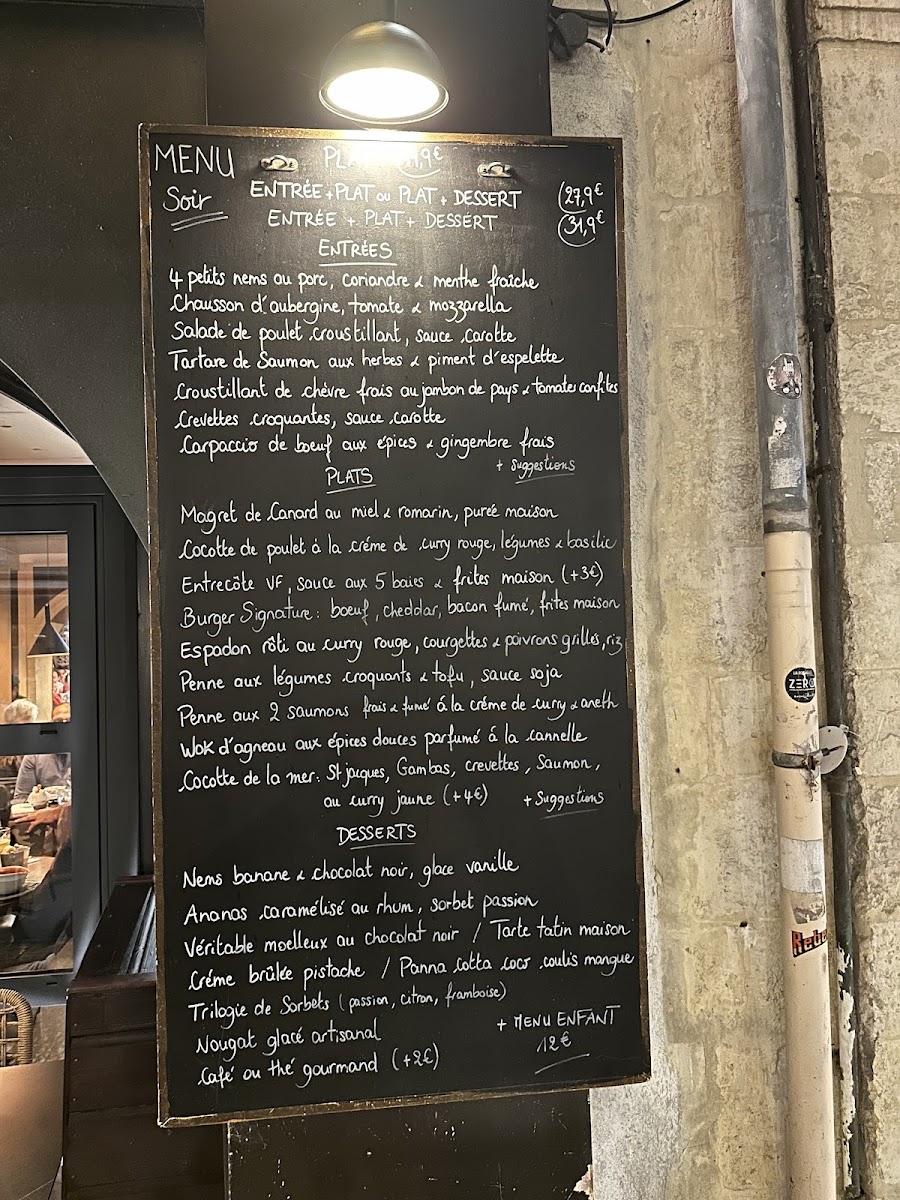 MENU
Soir
ENTRÉE + PLAT ou PLAT + DESSERT 27,9€
ENTRÉE + PLAT + DESSERT 31,9€
ENTRÉES
4 petits nems au porc, coriandre & menthe fraîche
Chausson d'aubergine, tomate & mozzarella
Salade de poulet croustillant, sauce carotte
Tartare de Saumon aux herbes & piment d'espelette
Croustillant de chèvre frais au jambon de pays & tomates confites
Crevettes croquantes, sauce carotte
Carpaccio de boeuf aux épices & gingembre frais
+ Suggestions
PLATS
Magret de Canard au miel & romarin, purée maison
Cocotte de poulet à la créme de curry rouge, légumes & basilic
Entrecôte VF, sauce aux 5 baies & frites maison (+3€)
Burger Signature : boeuf, cheddar, bacon fumé, frites maison
Espadon rôti au curry rouge, courgettes & poivrons grillés, riz
Penne aux légumes croquants & tofu, sauce soja
Penne aux 2 saumons frais & fumé á la créme de curry & aneth
Wok d'agneau aux épices douces parfumé á la cannelle
Cocotte de la mer : St jacques, Gambas, crevettes, Saumon,
au curry jaune (+4€)
+ Suggestions
DESSERTS
Nems banane & chocolat noir, glace vanille
Ananas caramélisé au rhum, sorbet passion
Véritable moelleux au chocolat noir / Tarte tatin maison
Créme brûlée pistache / Panna Cotta coco coulis mangue
Trilogie de Sorbets (passion, citron, framboise)
Nougat glacé artisanal
+ MENU ENFANT
12€
Café ou thé gourmand (+2€)
ZERO